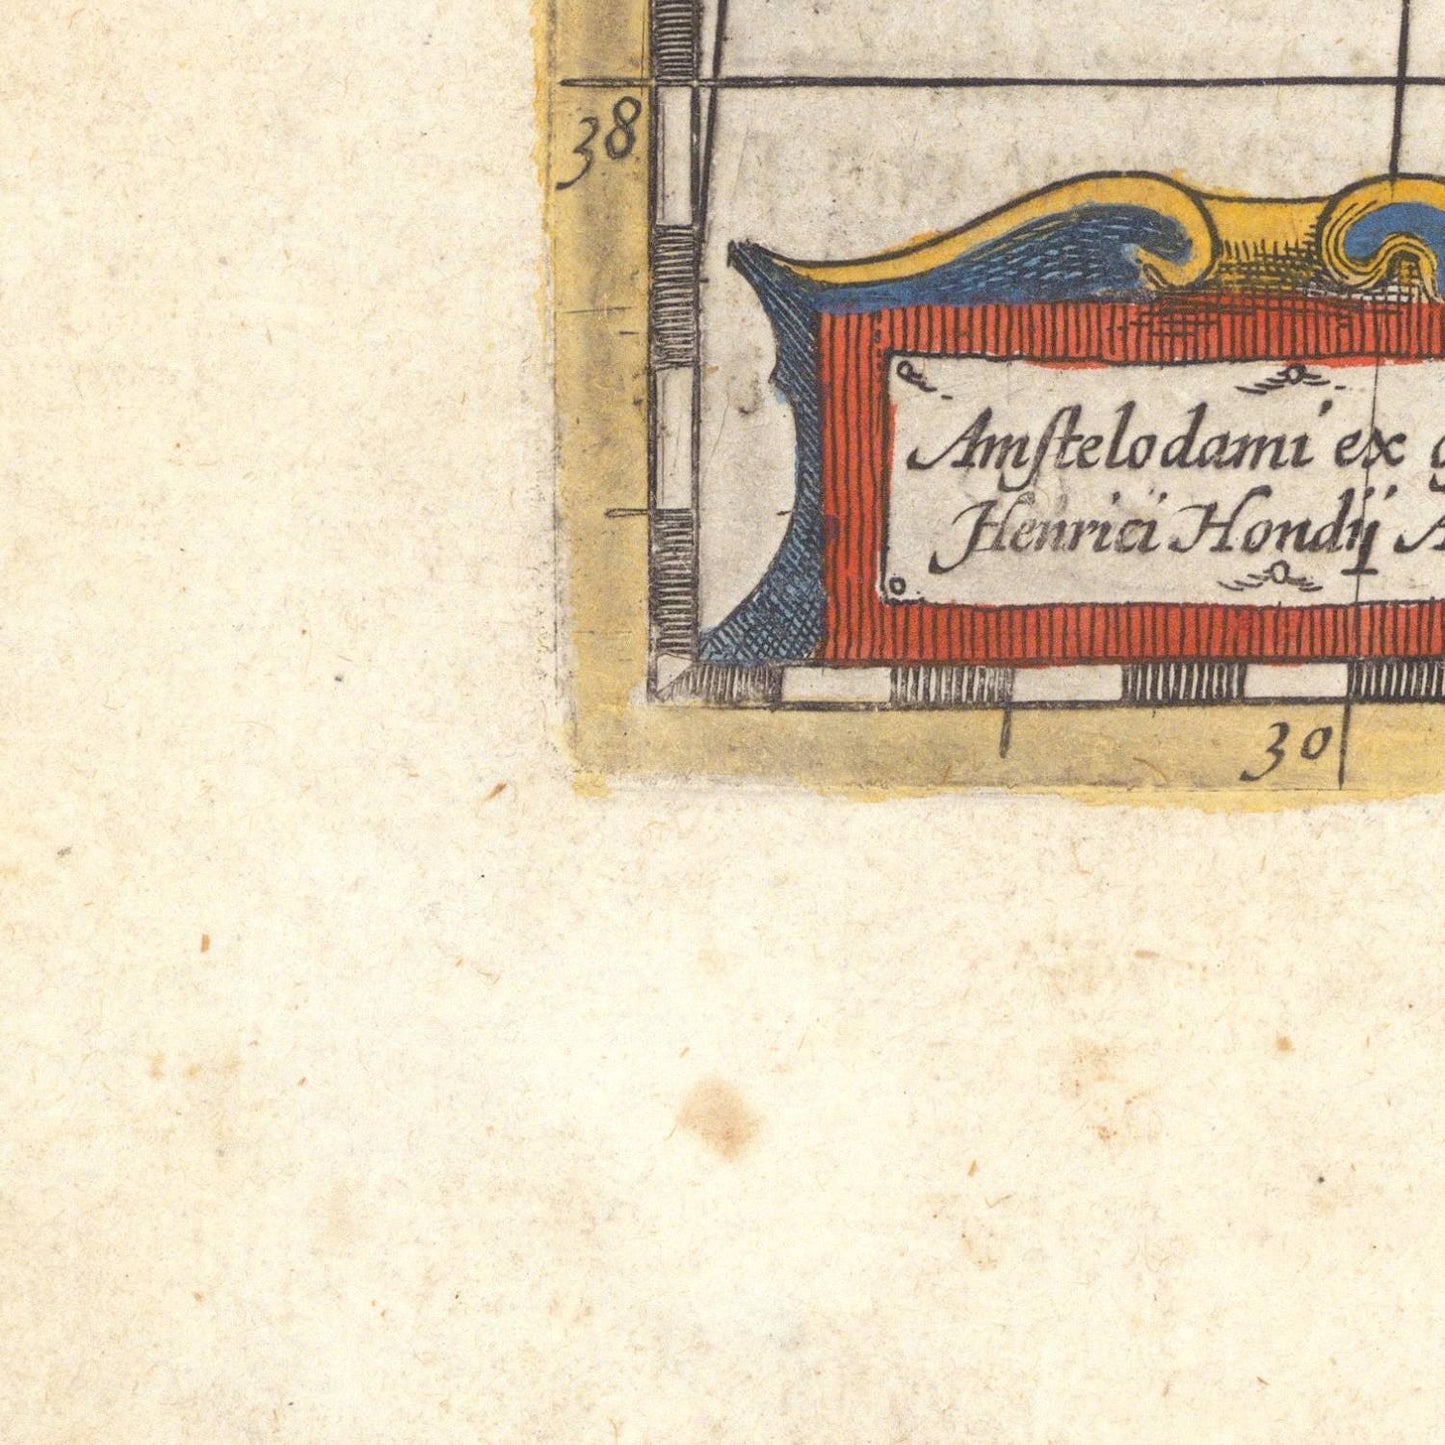 38
Amſtelodami ex
Henrici Hondij
30